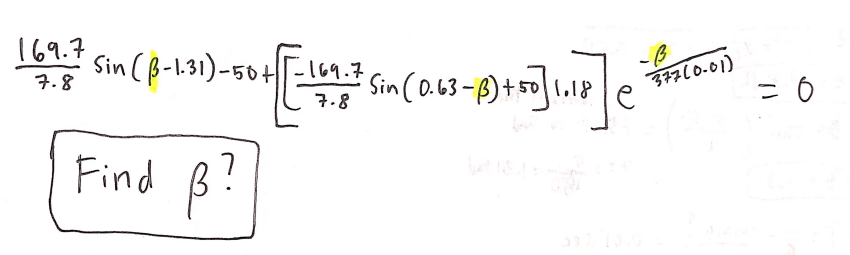 169.7/7.8 sin(β-1.31)-50+[[-169.7/7.8 sin(0.63-β)+50]1.18]e^(-β/377(0.01)) = 0
Find β?